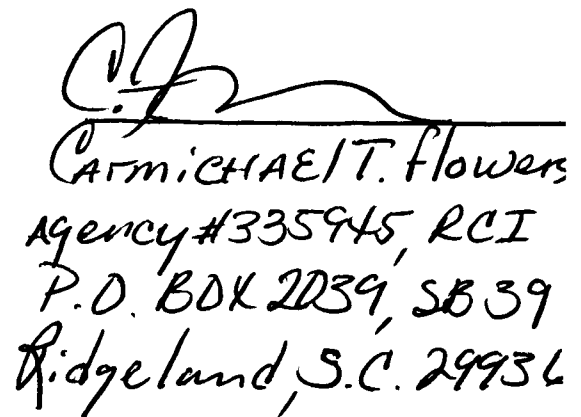 C. F
Carmichael T. Flowers
Agency #335945, RCI
P.O. BOX 2039, SB 39
Ridgeland, S.C. 29936